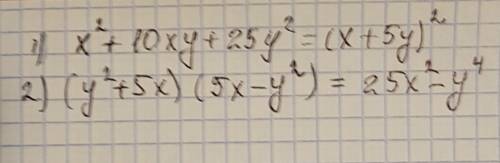 1) x² + 10xy + 25y² = (x + 5y)²
2) (y² + 5x) (5x - y²) = 25x² - y⁴